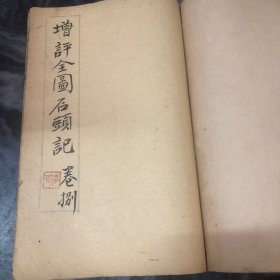 增評全圖石頭記
卷捌